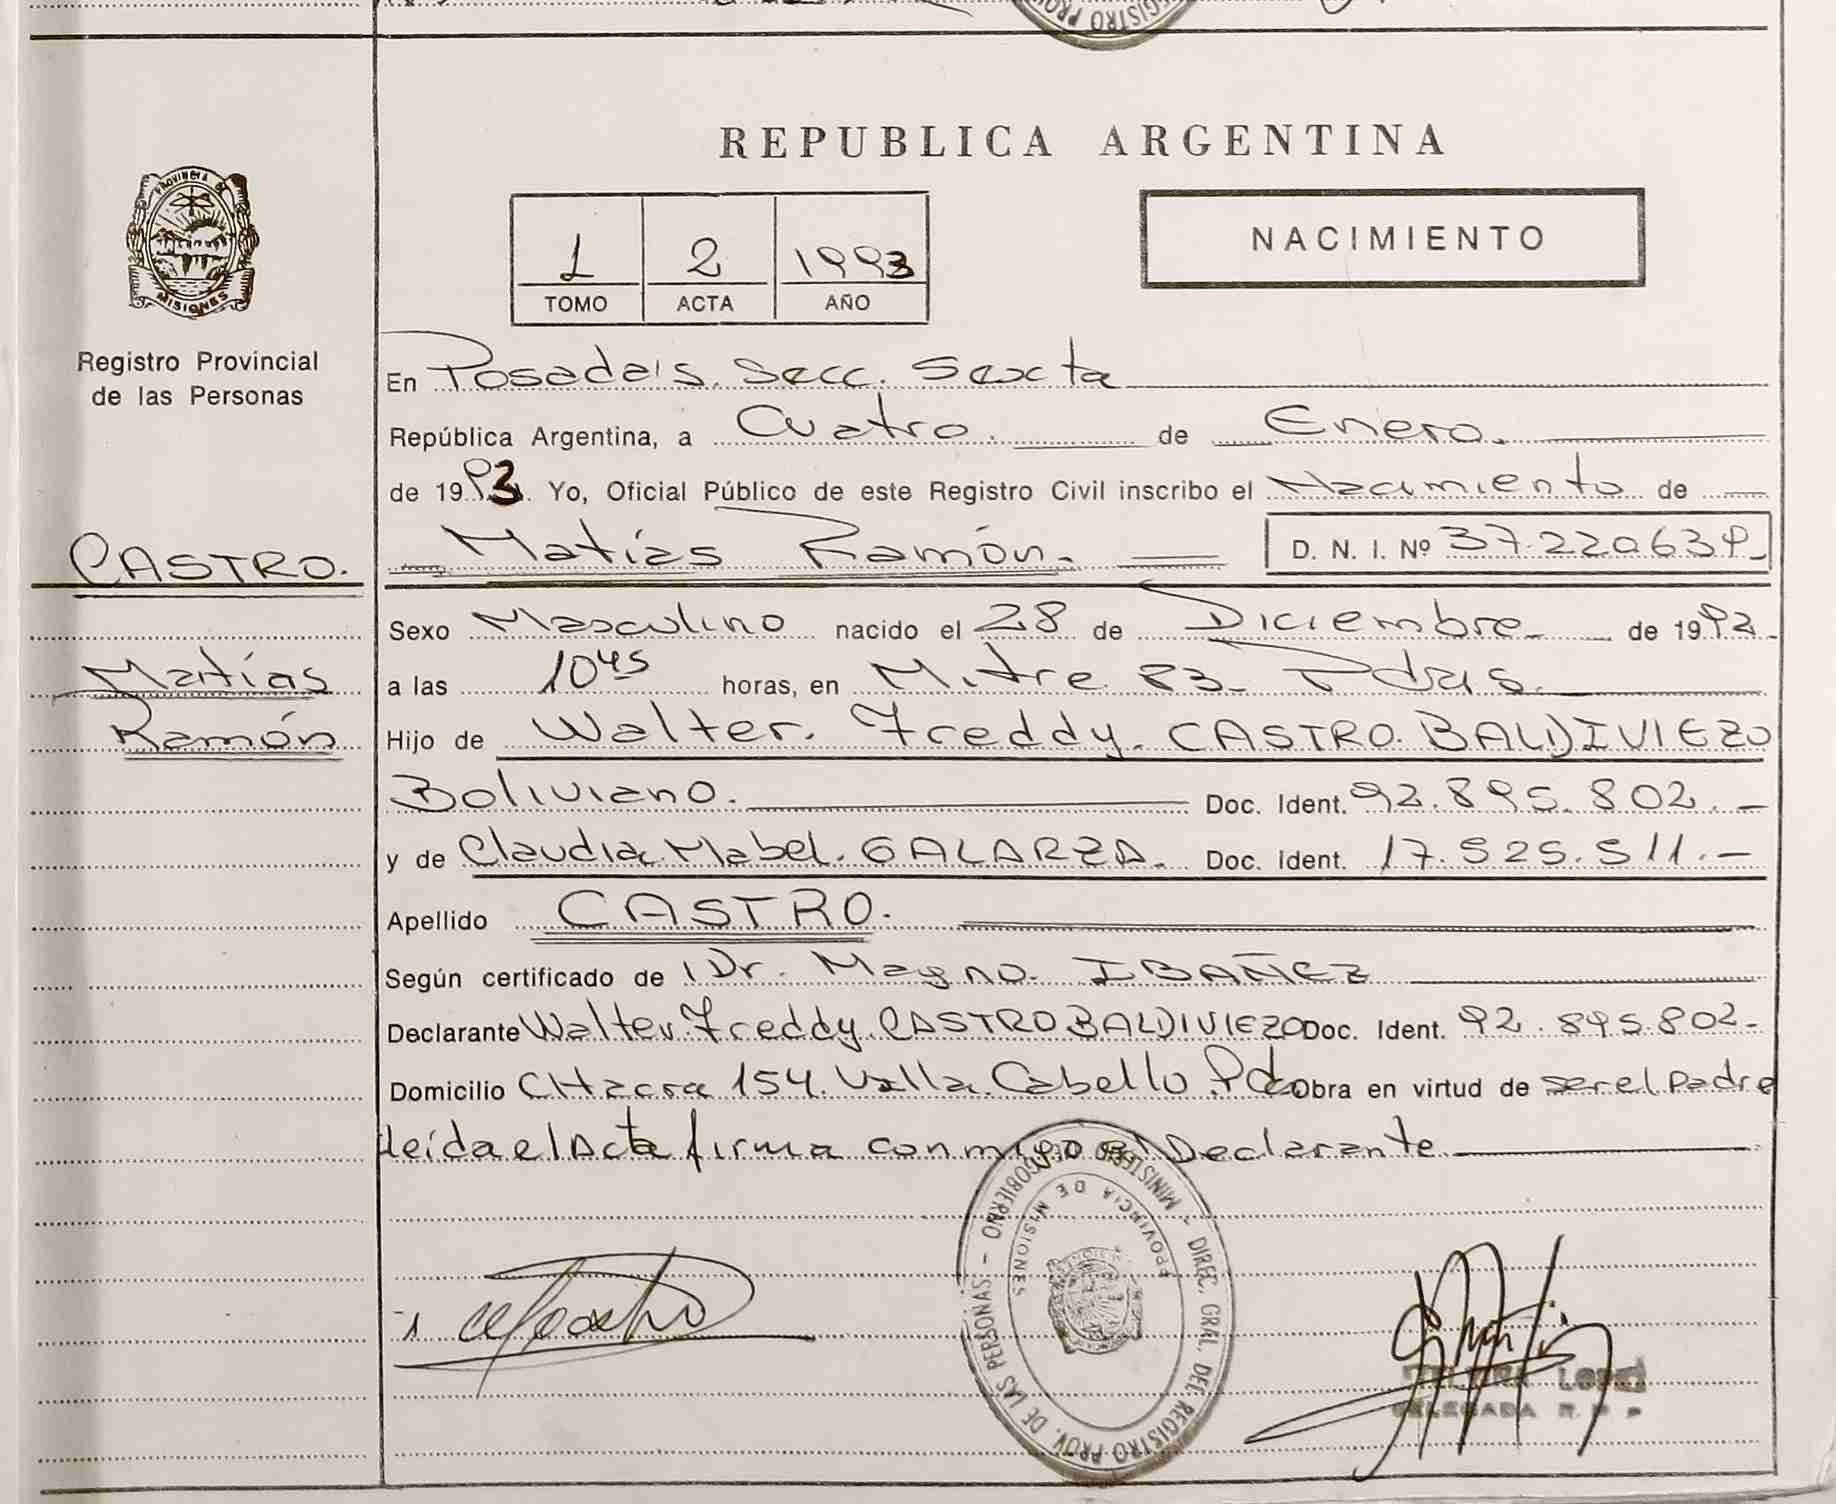 REGISTRO PROV
REPUBLICA ARGENTINA
PROVINCIA DE
MISIONES
1 2 1993
TOMO ACTA AÑO
NACIMIENTO
Registro Provincial
de las Personas
En Posadas. Secc. Sexta
República Argentina, a Cuatro. de Enero.
de 1993. Yo, Oficial Público de este Registro Civil inscribo el Nacimiento de
CASTRO. Matías Ramón. D. N. I. Nº 37.220.639
Sexo Masculino nacido el 28 de Diciembre de 1992
Matías a las 10 45 horas, en Mitre 83 - Pdas.
Ramón Hijo de Walter. Freddy. CASTRO. BALDIVIEZO
Boliviano. Doc. Ident. 92.895.802.-
y de Claudia Mabel. GALARZA. Doc. Ident. 17.525.511.-
Apellido CASTRO.
Según certificado de Dr. Magno. IBAÑEZ
Declarante Walter Freddy CASTRO BALDIVIEZO Doc. Ident. 92.895.802-
Domicilio CHacra 154. Villa Cabello Pdas Obra en virtud de ser el Padre
leída el Acta firma conmigo el Declarante
MINISTERIO DE GOBIERNO - DIREC. GRAL. DEL REGISTRO PROV. DE LAS PERSONAS -
PROVINCIA DE MISIONES
DELEGADA R. P. P